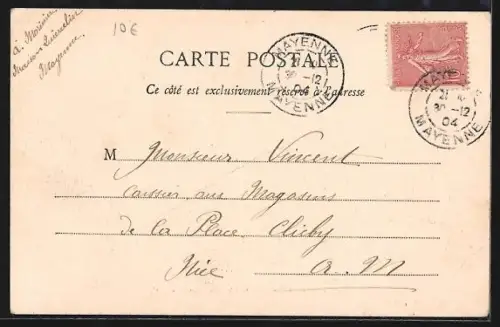 à M
Maison
Mayenne
10€
CARTE POSTALE
Ce côté est exclusivement réservé à l'adresse
MAYENNE
30 -12
04
MAYENNE
MAYENNE
30 -12
04
MAYENNE
M Monsieur Vincent
caissier aux Magasins
de la Place Clichy
Nice A. M